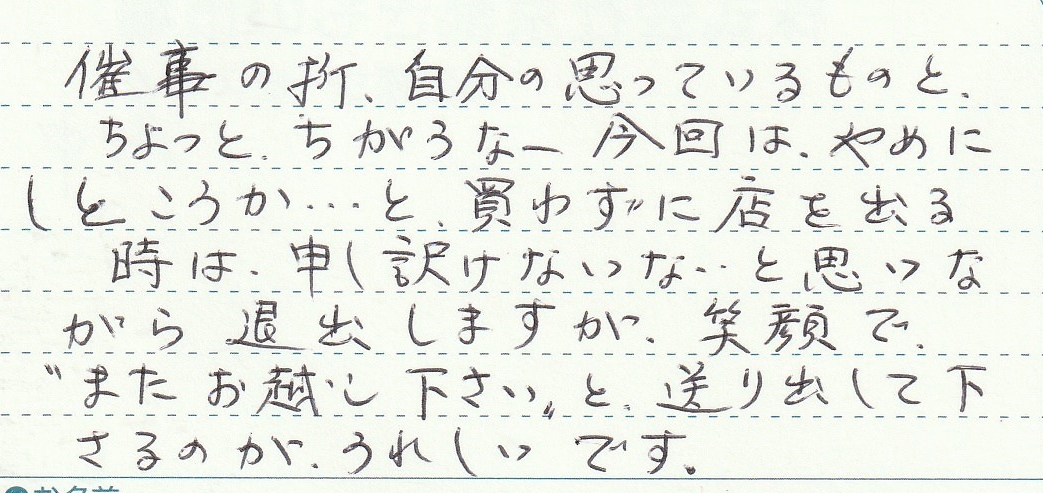 催事の折、自分の思っているものと、
ちょっと、ちがうなー 今回は、やめに
しとこうか…と、買わずに店を出る
時は、申し訳けないな…と思いな
がら退出しますが、笑顔で、
〝またお越し下さい〟と、送り出して下
さるのが、うれしいです。
お名前